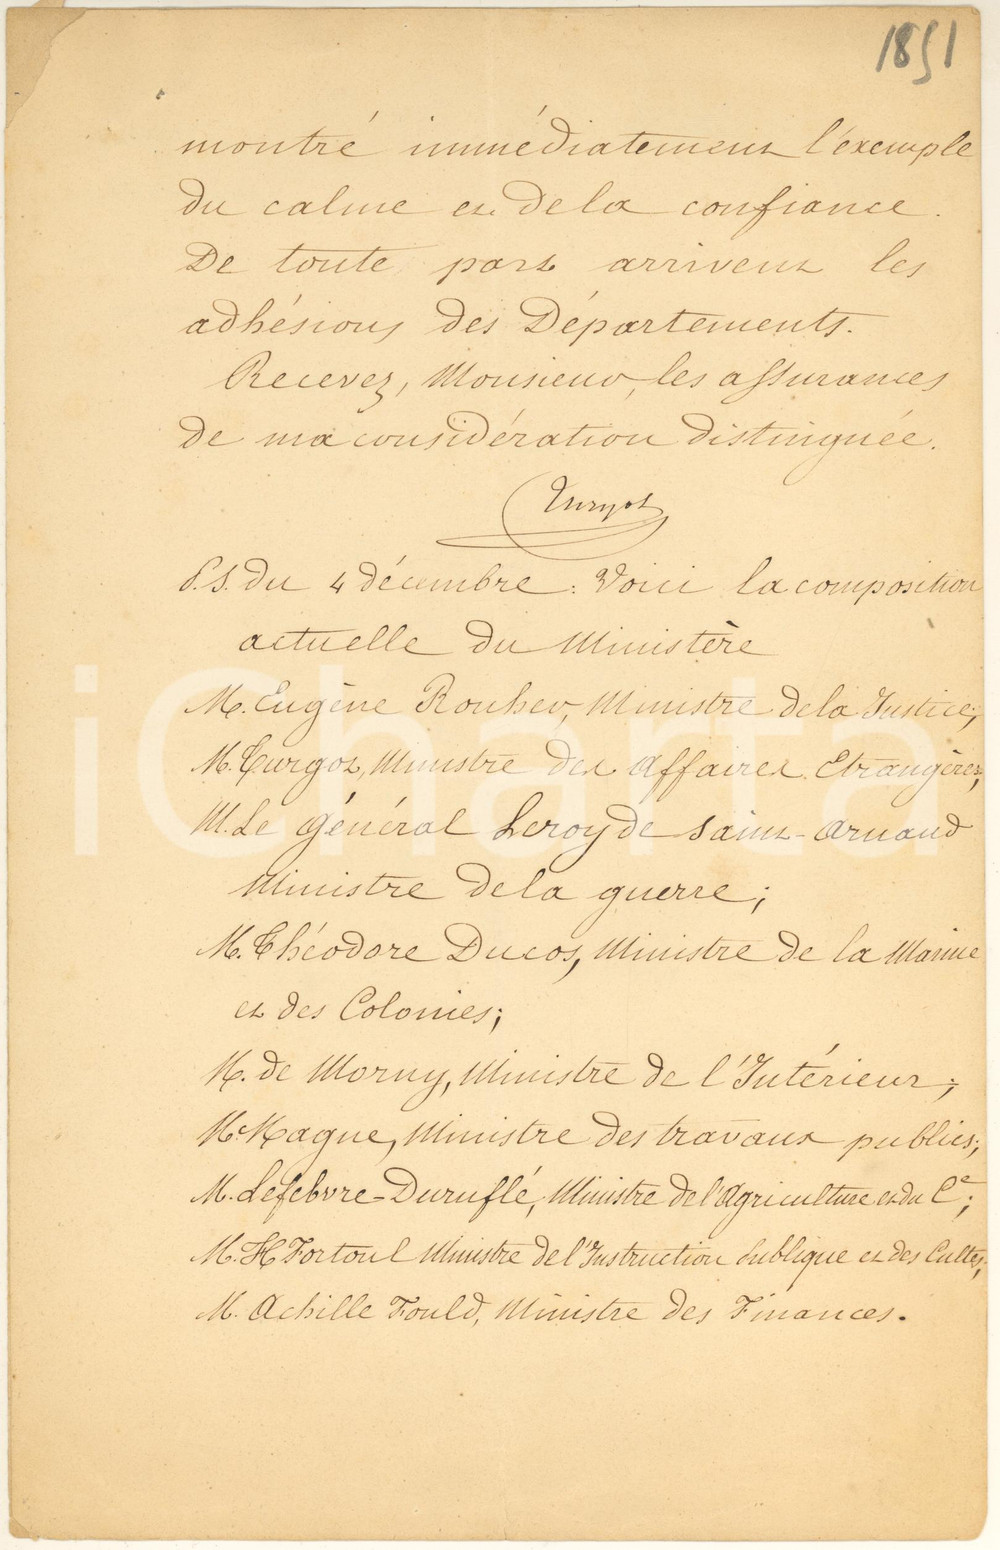 1851
montré immédiatement l'exemple
du calme et de la confiance.
De toute part arrivent les
adhésions des Départements.
Recevez, Monsieur, les assurances
de ma considération distinguée.
Turgot
P.S. du 4 décembre : Voici la composition
actuelle du Ministère
M. Eugène Rouher, Ministre de la Justice;
M. Turgot, Ministre des Affaires Etrangères;
M. Le Général Leroy de Saint-Arnaud
Ministre de la guerre;
M. Théodore Ducos, Ministre de la Marine
et des Colonies;
M. de Morny, Ministre de l'Intérieur;
M. Magne, Ministre des travaux publics;
M. Lefebvre-Duruflé, Ministre de l'Agriculture et du Ce;
M. H Fortoul Ministre de l'Instruction publique et des Cultes;
M. Achille Fould, Ministre des Finances.
iCharta